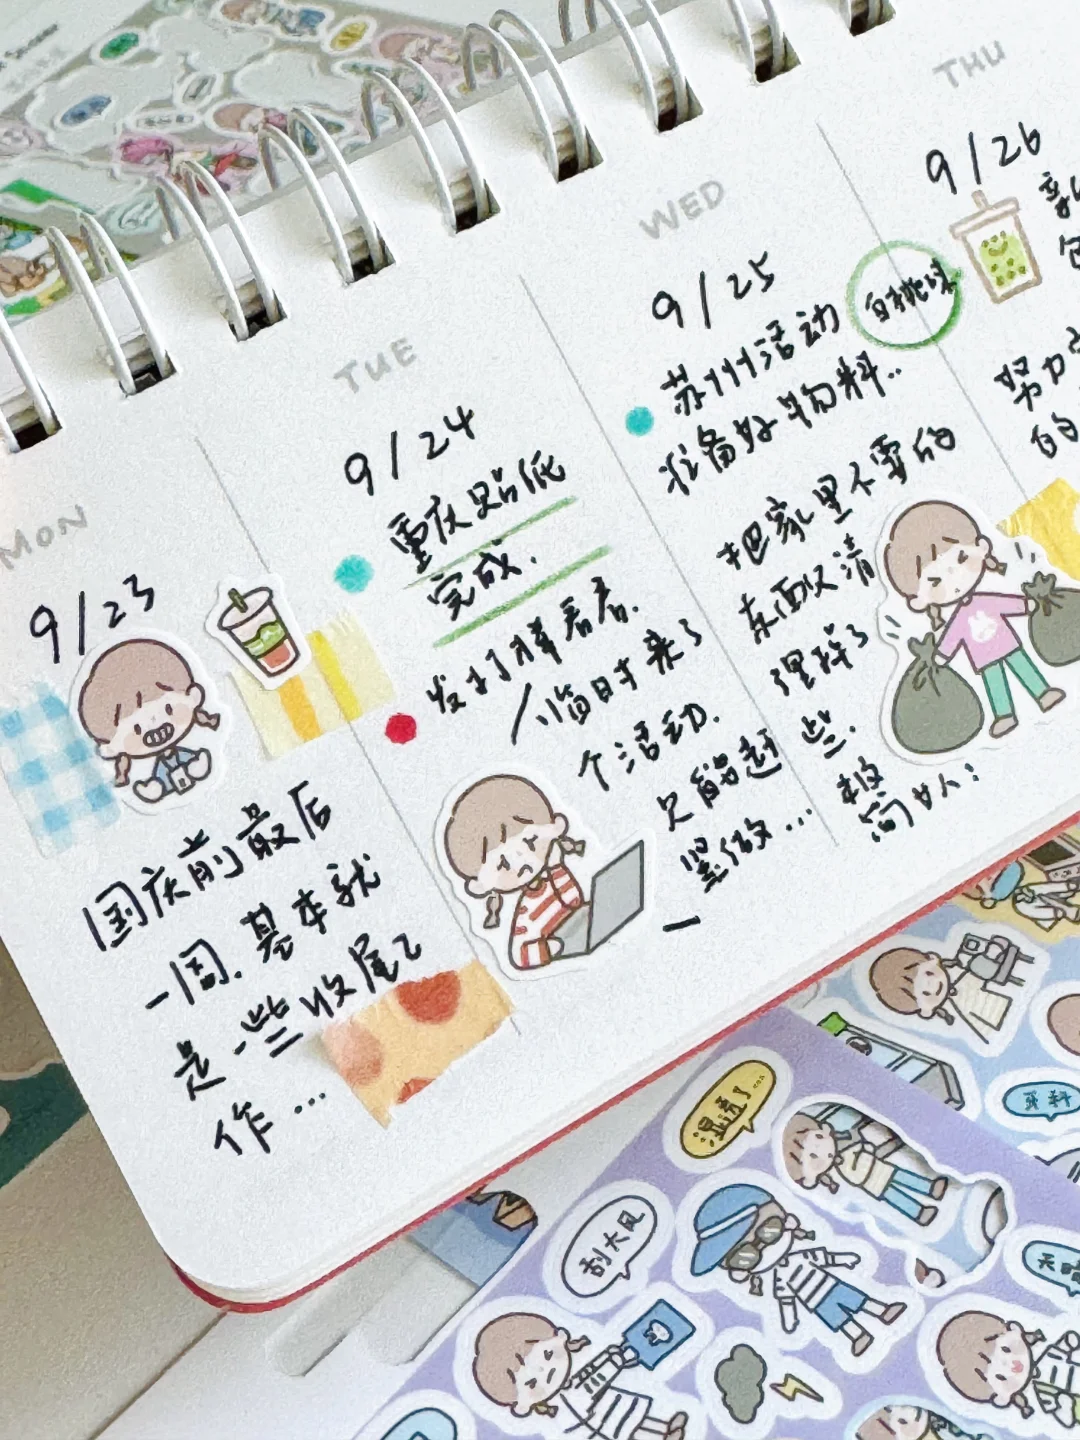 MON
9/23
国庆前最后
一周.基本就
是一些收尾工
作...
TUE
9/24
重庆贴纸
完成.
发打样看看.
临时来了
个活动.
只能赶
紧做...
WED
9/25
苏州活动
准备好物料..
把家里不要的
东西又清
理掉了
些.
极
简女人!
白桃味
THU
9/26
努力
的
湿透了...
刮大风